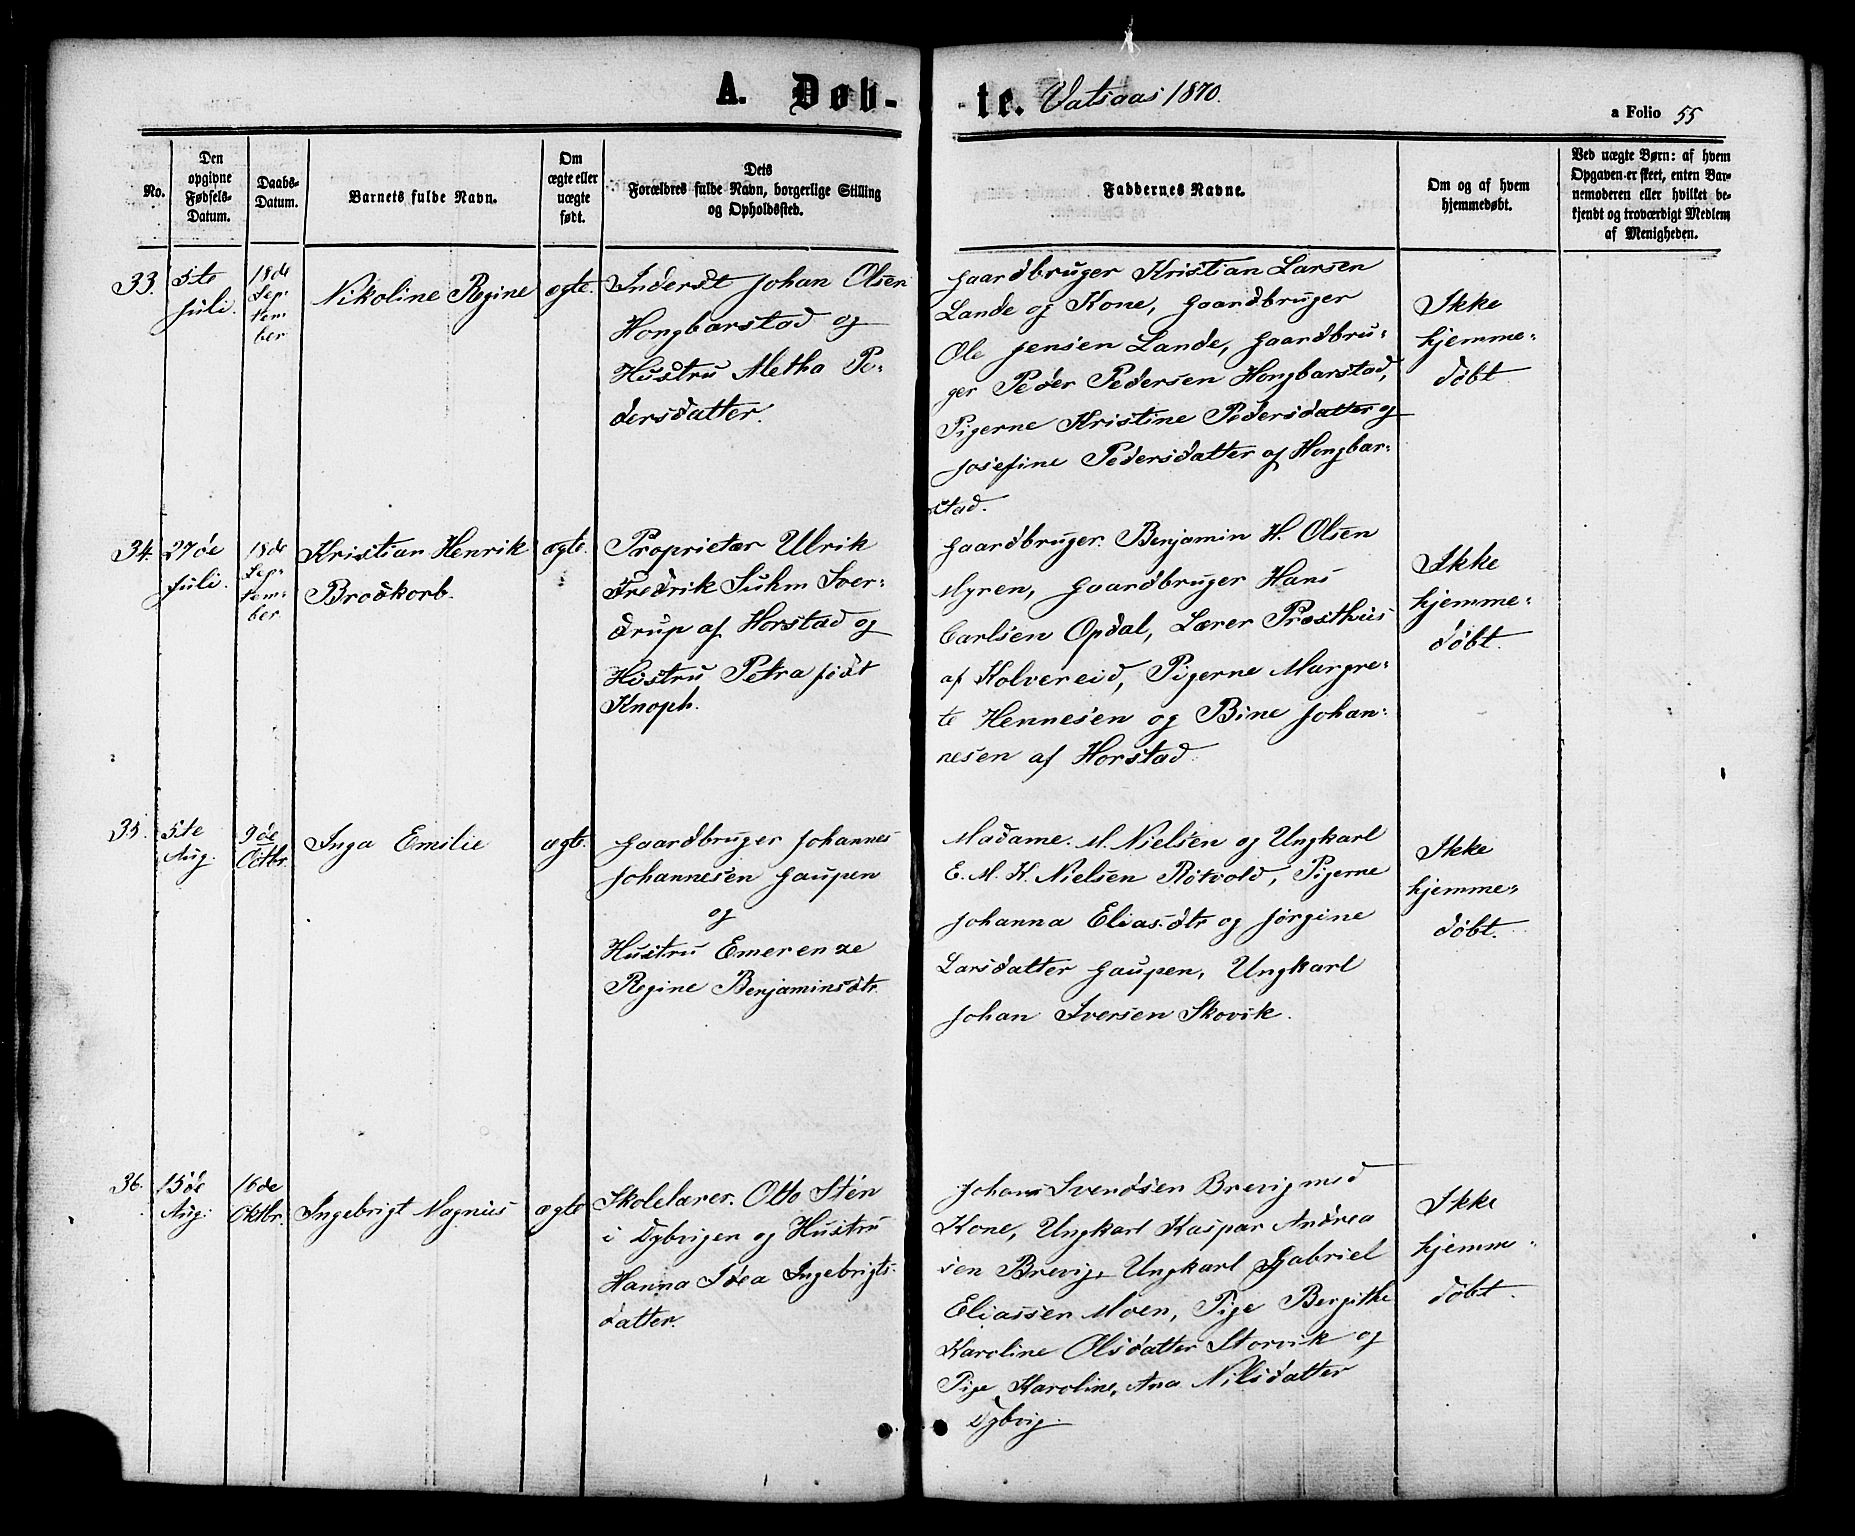 A. Døb-te. Vatsaas 1870.
a Folio 55
No.
Den
opgivne
Fødsels-
Datum.
Daabs-
Datum.
Barnets fulde Navn.
Om
ægte eller
uægte
født.
Dets
Forældres fulde Navn, borgerlige Stilling
og Opholdssted.
Faddernes Navne.
Om og af hvem
hjemmedøbt.
Ved uægte Børn: af hvem
Opgaven er skeet, enten Bar-
nemoderen eller hvilket be-
kjendt og troværdigt Medlem
af Menigheden.
33.
5te
Juli.
18de
Sep-
tem-
ber
Nikoline Regine
ægte.
Inderst Johan Olsen
Hongbarstad og
Hustru Metha Pe-
dersdatter.
Gaardbruger Kristian Larsen
Lande og Kone, Gaardbruger
Ole Jensen Lande, Gaardbru-
ger Peder Pedersen Hongbarstad,
Pigerne Kristine Pedersdatter og
Josefine Pedersdatter af Hongbar-
stad.
Ikke
hjemme-
døbt.
34.
27de
Juli.
18de
Sep-
tem-
ber.
Kristian Henrik
Brodkorb.
ægte.
Proprietær Ulrik
Fredrik Suhm Sver-
drup af Horstad og
Hustru Petra født
Knoph.
Gaardbruger. Benjamin H. Olsen
Myren, Gaardbruger Hans
Carlsen Opdal, Lærer Prosthus
af Kolvereid, Pigerne Margre-
te Hennesen og Bine Johan-
nesen af Horstad.
Ikke
hjemme-
døbt.
35.
5te
Aug.
9de
Octbr.
Inga Emilie
ægte.
Gaardbruger Johannes
Johannesen Gaupen
og
Hustru Emerenze
Regine Benjaminsdtr.
Madame. M. Nielsen og Ungkarl
E. M. K. Nielsen Rötvold, Pigerne
Johanna Eliasdtr og Jørgine
Larsdatter Gaupen, Ungkarl
Johan Iversen Skovik.
Ikke
hjemme-
døbt.
36.
15de
Aug.
16de
Oktbr.
Ingebrigt Magnus
ægte
Skolelærer. Otto Stén
i Dybvigen og Hustru
Hanna Idea Ingebrigts-
datter.
Johan Svendsen Brevig med
Kone, Ungkarl Kaspar Andrea
sen Brevig, Ungkarl Gabriel
Eliassen Moen, Pige Bergithe
Karoline Olsdatter Storvik og
Pige Karoline, Ana Nilsdatter
Dybvig.
Ikke
hjemme-
døbt.